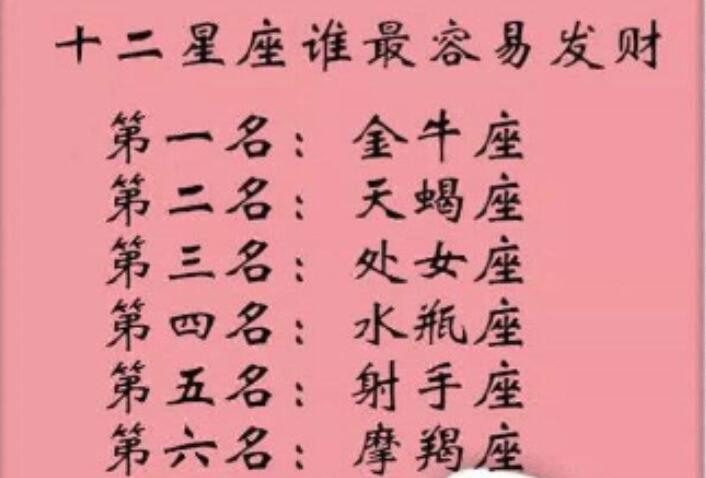 十二星座谁最容易发财
第一名：金牛座
第二名：天蝎座
第三名：处女座
第四名：水瓶座
第五名：射手座
第六名：摩羯座